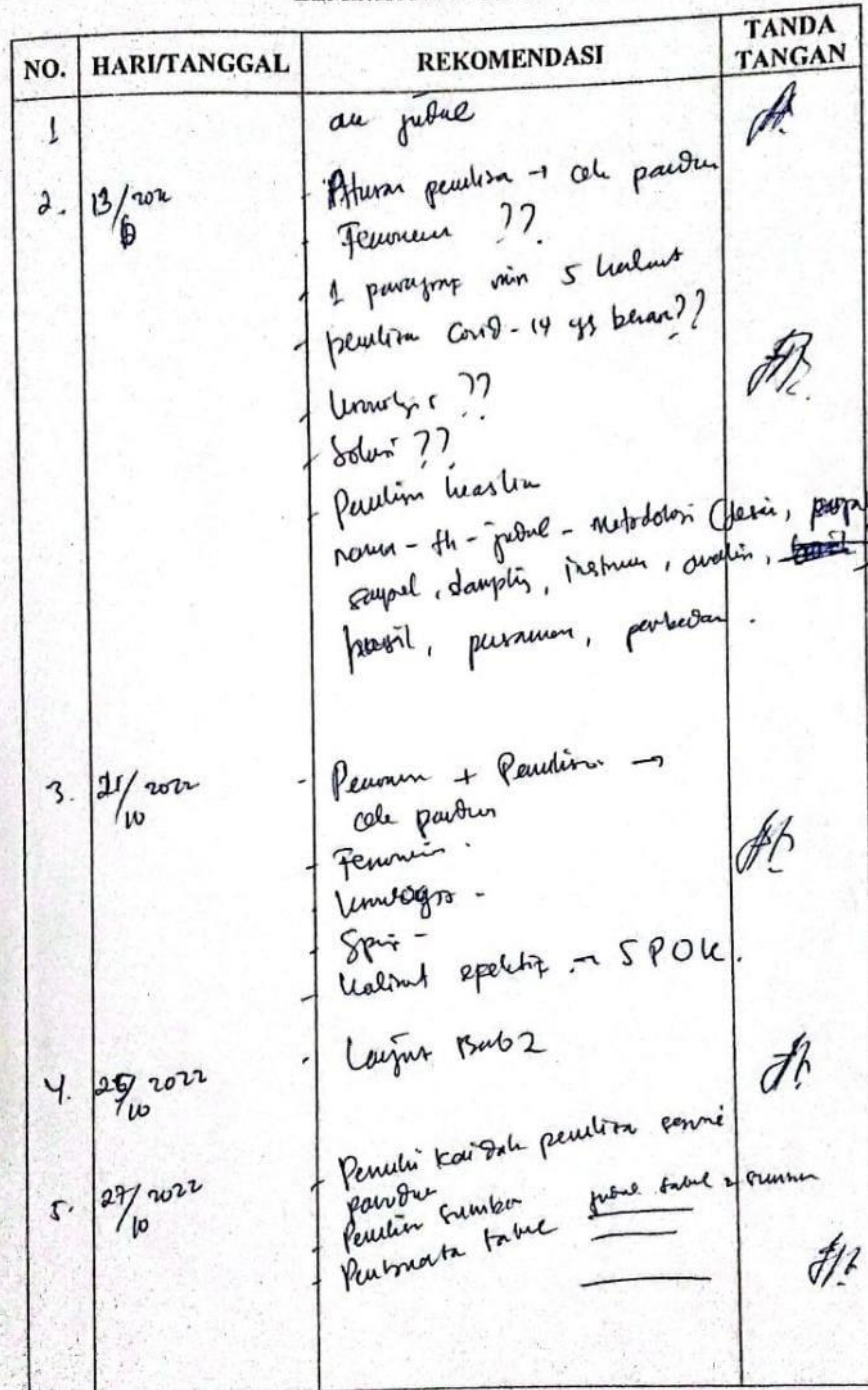 NO. HARI/TANGGAL REKOMENDASI TANDA TANGAN
1 acc judul
2. 13/2022 - Aturan penulisan → cek panduan
- Fenomena ??
- 1 paragraf min 5 kalimat
- penulisan Covid-19 yg benar??
- kronologis ??
- Solusi ??
- Penulisan keaslian
nama - th - judul - metodologi (desain,
sampel, sampling, instrumen, analisis,
hasil, persamaan, perbedaan.
3. 21/2022 10 - Penomoran + Penulisan →
cek panduan
- Fenomena -
- kronologis -
- kalimat efektif → SPOK.
4. 25/2022 10 - Lanjut Bab 2
5. 27/2022 10 - Penuhi kaidah penulisan sesuai
panduan
- Penulisan sumber judul tabel & sumber
- Pembuatan tabel